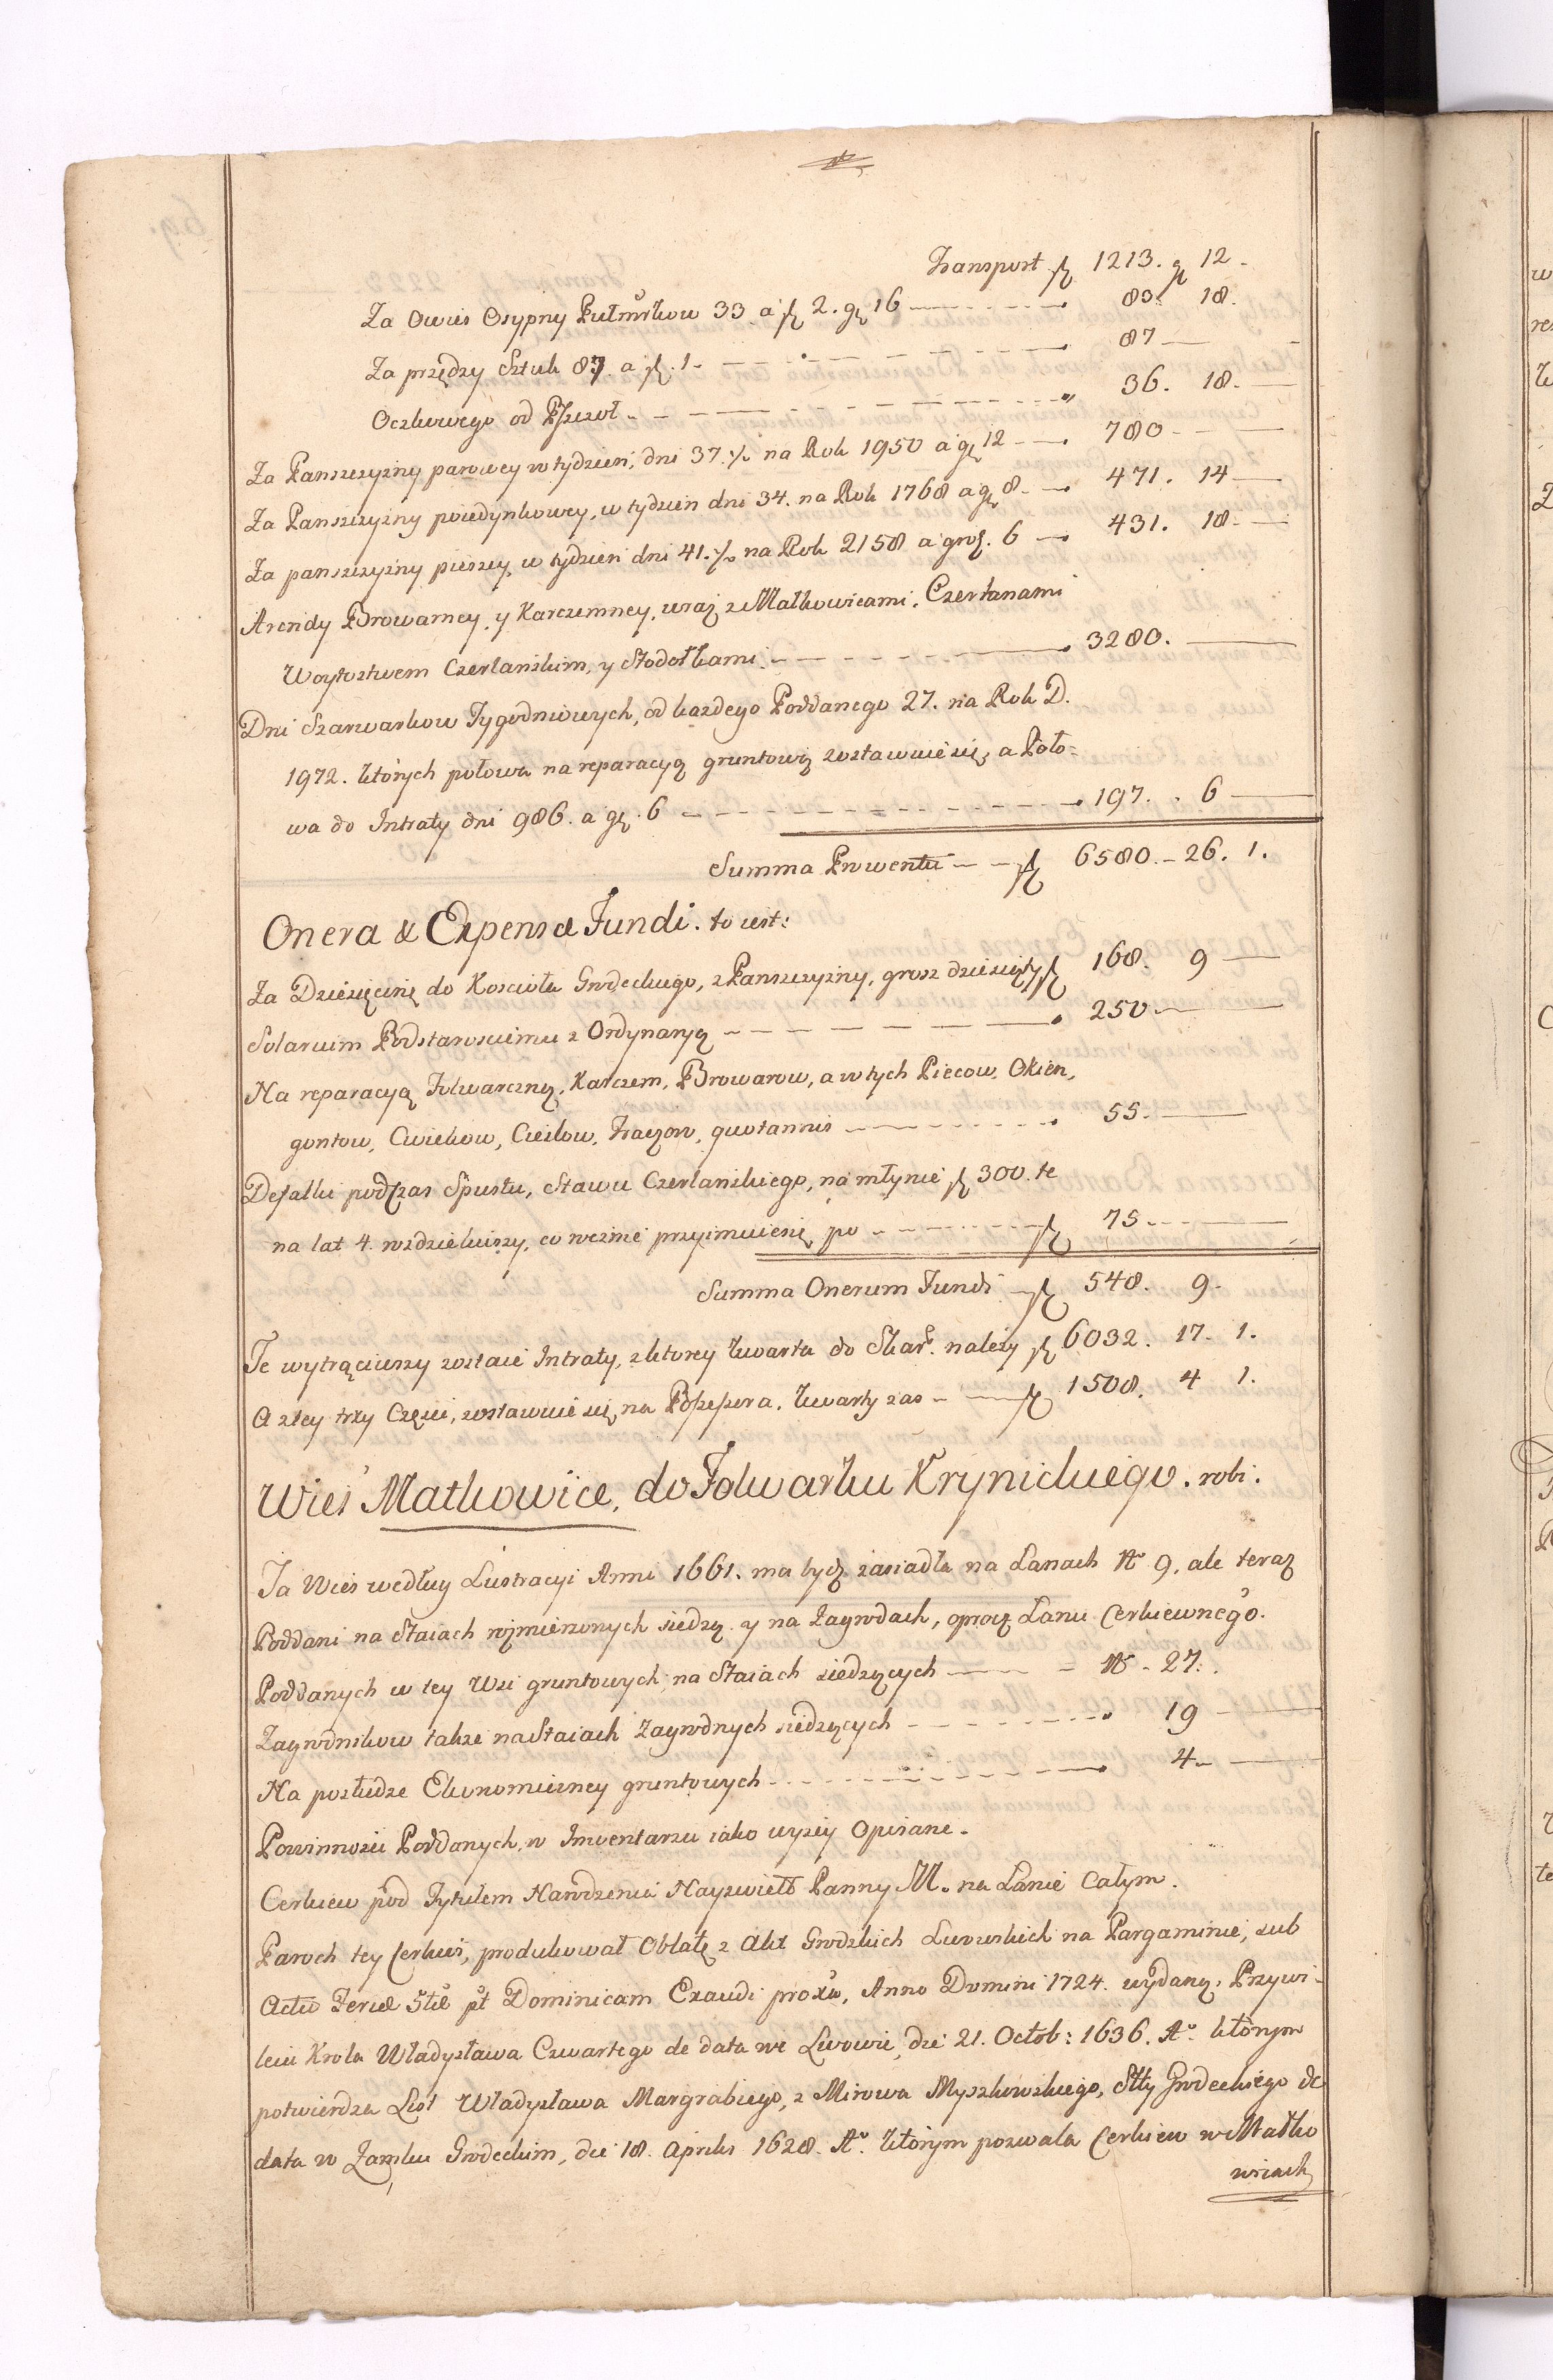 Transport zł 1213. gr 12 -
Za Owies Osypny Pułmirkow 33 a zł 2. gr 16 — 83. 18.
Za przędzy Sztuk 87. a zł. 1 — 87 —
Oczkowego od Pszczoł — 36. 18. —
Za Panszczyzny parowey w tydzień, dni 37. ½ na Rok 1950 a gr 12 — 780 —
Za Panszczyzny poiedynkowey, w tydzien dni 34. na Rok 1768 a gr 8. — 471. 14 —
Za panszczyzny pieszey, w tydzień dni 41. ½ na Rok 2158 a grosz. 6 — 431. 18. —
Arendy Browarney, y Karczemney, wraz z Malkowicami, Czerlanami
Woytostwem Czerlanskim, y Stodołkami — 3280. —
Dni Szarwarkow Tygodniowych, od każdego Poddanego 27. na Rok D.
1972. których połowa na reparacyą gruntową zostawuie się, a Poło-
wa do Intraty dni 986. a gr. 6 — 197. . 6 —
Summa Prowentu — zł 6580. – 26. 1.
Onera & Expensæ Fundi. to iest:
Za Dziesięcinę do Koscioła Grodeckiego, z Panszczyzny, grosz dziesiąty zł 168. 9 —
Solarium Podstarosciemu z Ordynaryą — 250 —
Na reparacyą Folwarczną, Karczem, Browarow, a w tych Piecow, Okien,
gontow, Cwiekow, Cieslow, Traczow, quotannis — 55. —
Defalki podczas Spustu, Stawu Czerlanskiego, na młynie zł 300. te
na lat 4. rozdzieliwszy, co rocznie przyimuie się, po — zł 75 —
Summa Onerum Fundi — zł 548. 9 -
Te wytrąciwszy zostaie Intraty, z ktorey kwarta do Skar. należy zł 6032. 17. 1.
A z tey trzy Częsci, zostawuie się, na Possessora. kwarty zas — zł 1508. 4 1.
Wieś Malkowice, do Folwarku Krynickiego. robi.
Ta Wieś według Lustracyi Anni 1661. ma bydź zasiadła na Łanach No 9. ale teraz
Poddani na Staiach rozmierzonych siedzą. y na Zagrodach, oprocz Łanu Cerkiewnego.
Poddanych w tey Wsi gruntowych, na Staiach siedzących — = No - 27.
Zagrodnikow takze na Staiach Zagrodnych siedzących — 19 —
Na posłudze Ekonomiczney gruntowych — 4 —
Powinnosci Poddanych, w Inwentarzu iako wyzey Opisane.
Cerkiew pod Tytułem Narodzenia Nayswięt Panny M. na Łanie Całym.
Paroch tey Cerkwi, produkował Oblatę z Akt Grodzkich Lwowskich na Pargaminie, sub
Actu Feriæ 5tæ pt Dominicam Exaudi proxa, Anno Domini 1724. wydaną, Przywi-
leiu Krola Władysława Czwartego de data we Lwowie, die 21. Octob: 1636. Ao. którym
potwierdza List Władysława Margrabiego, z Mirowa Myszkowskiego, Stty Grodeckiego de
data w Zamku Grodeckim, die 18. Aprilis 1628. Ao. którym pozwala Cerkiew w Malko
wicach